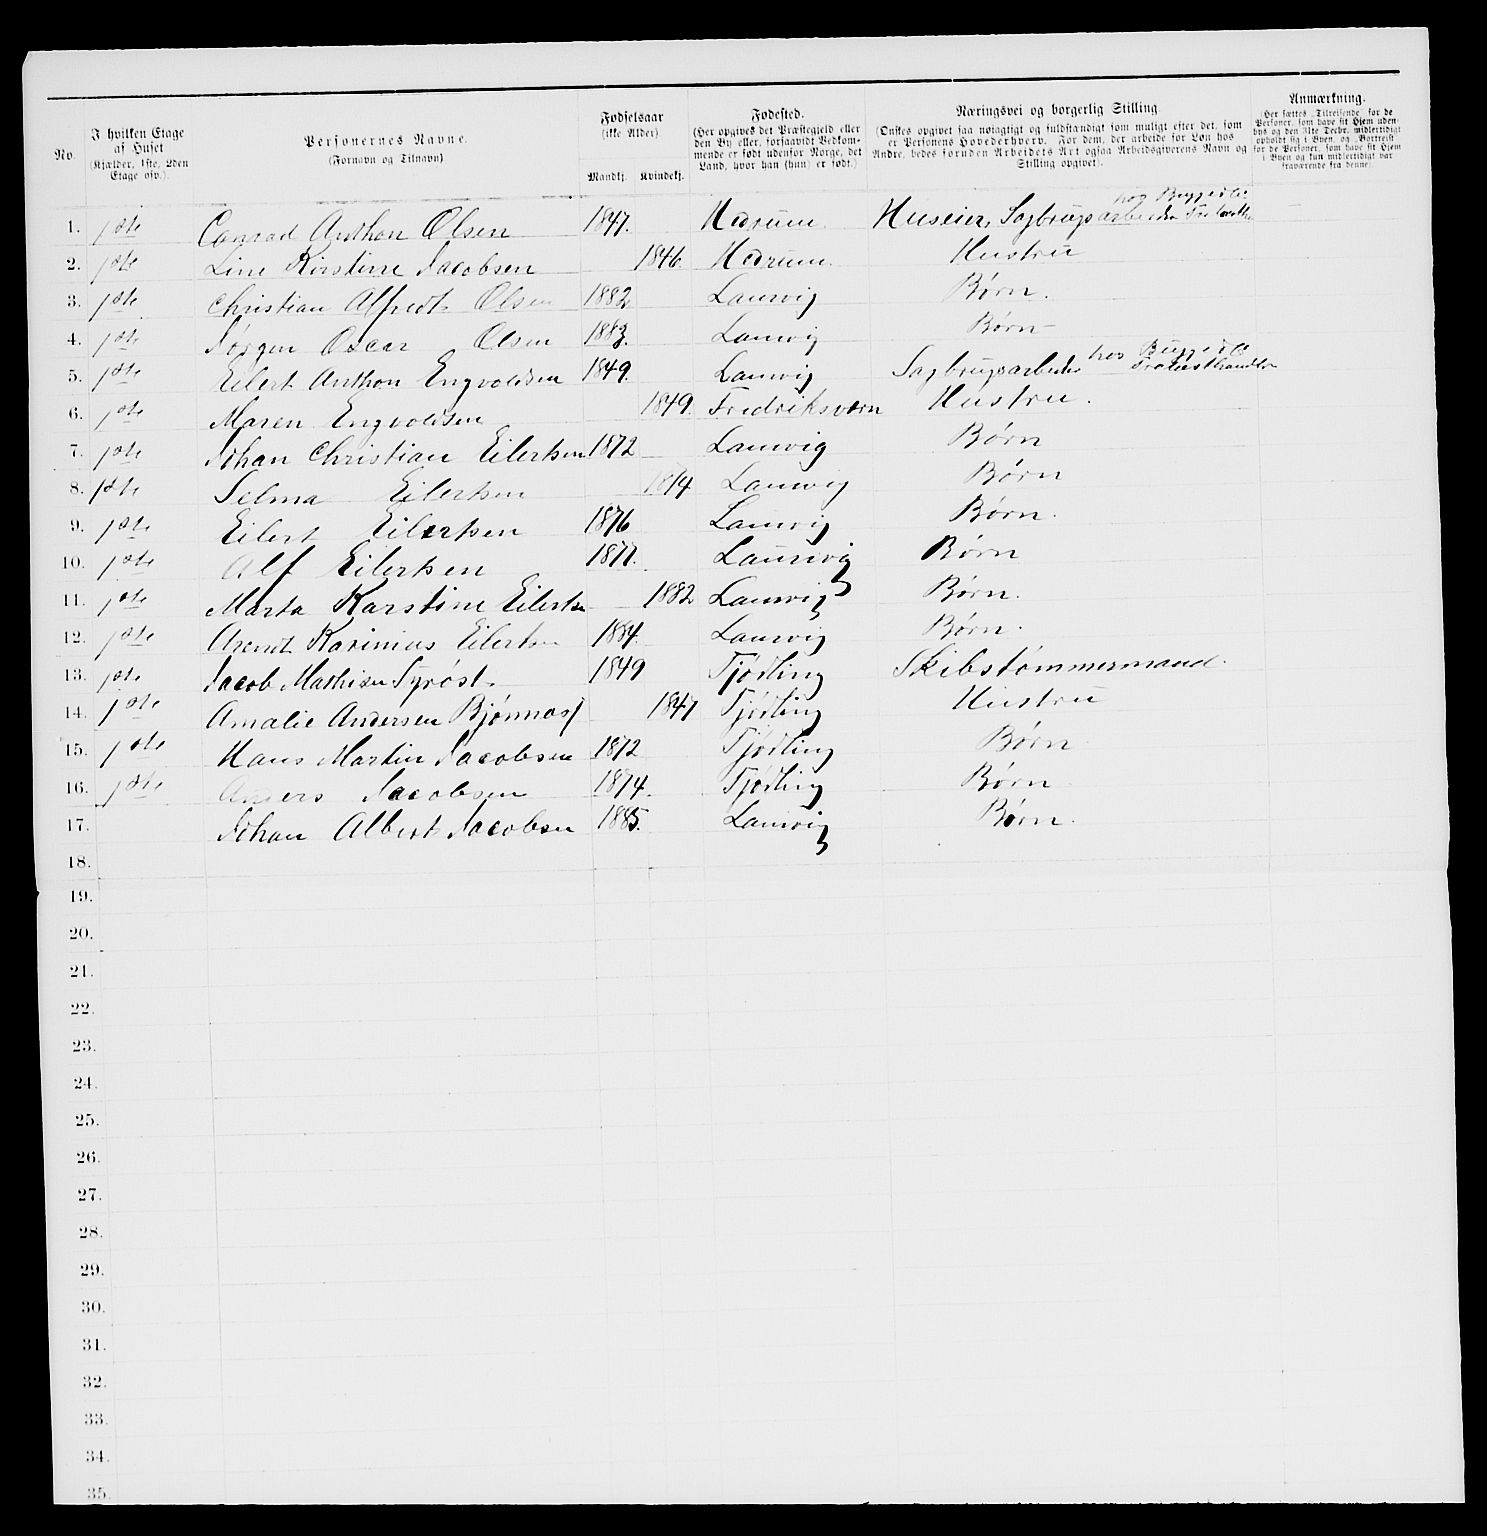 No.
I hvilken Etage af Huset
(Kjælder, 1ste, 2den Etage osv.).
Personernes Navne.
(Fornavn og Tilnavn)
Fødselsaar
(ikke Alder)
Mandkj. Kvindekj.
Fødested.
(Her opgives det Præstegjeld eller den By eller, forsaavidt Vedkommende er født udenfor Norge, det Land, hvor han (hun) er født.)
Næringsvei og borgerlig Stilling.
(Ønskes opgivet saa nøiagtigt og fuldstændigt som muligt efter det, som er Personens Hovederhverv. For dem, der arbeide for Løn hos Andre, bedes foruden Arbeidets Art ogsaa Arbeidsgiverens Navn og Stilling opgivet).
Anmærkning.
(Her sættes „Tilreisende" for de Personer, som have sit Hjem udenbys og den 31te Decbr. midlertidigt opholdt sig i Byen, og „Bortreist" for de Personer, som have sit Hjem i Byen og kun midlertidigt var fraværende fra denne)
1. 1ste Conrad Anthon Olsen 1847. Hedrum. Huseier, Sagbrugsarbeider hos
2. 1ste Line Kirstine Jacobsen 1846. Hedrum. Hustru
3. 1ste Christian Alfredt Olsen 1882 Laurvig Børn.
4. 1ste Jørgen Oscar Olsen 1883. Laurvig Børn
5. 1ste Eilert Anthon Engvoldsen 1849. Laurvig Sagbrugsarbeider hos Trælasthandler
6. 1ste Maren Engvoldsen 1849. Fredriksværn Hustru.
7. 1ste Johan Christian Eilertsen 1872 Laurvig Børn
8. 1ste Selma Eilertsen 1874 Laurvig Børn
9. 1ste Eilert Eilertsen 1876 Laurvig Børn.
10. 1ste Alf Eilertsen 1877. Laurvig Børn
11. 1ste Marta Karstine Eilertsen 1882 Laurvig Børn.
12. 1ste Arendt Karinius Eilertsen 1884. Laurvig Børn.
13. 1ste Jacob Mathisen Tyrøst 1849 Tjødling Skibstømmermand.
14. 1ste Amalie Andersen Bjønnas 1847 Tjødling Hustru
15. 1ste Hans Martin Jacobsen 1872 Tjødling Børn
16. 1ste Anders Jacobsen 1874. Tjødling Børn
17. Johan Albert Jacobsen 1885. Laurvig Børn.
18.
19.
20.
21.
22.
23.
24.
25.
26.
27.
28.
29.
30.
31.
32.
33.
34.
35.